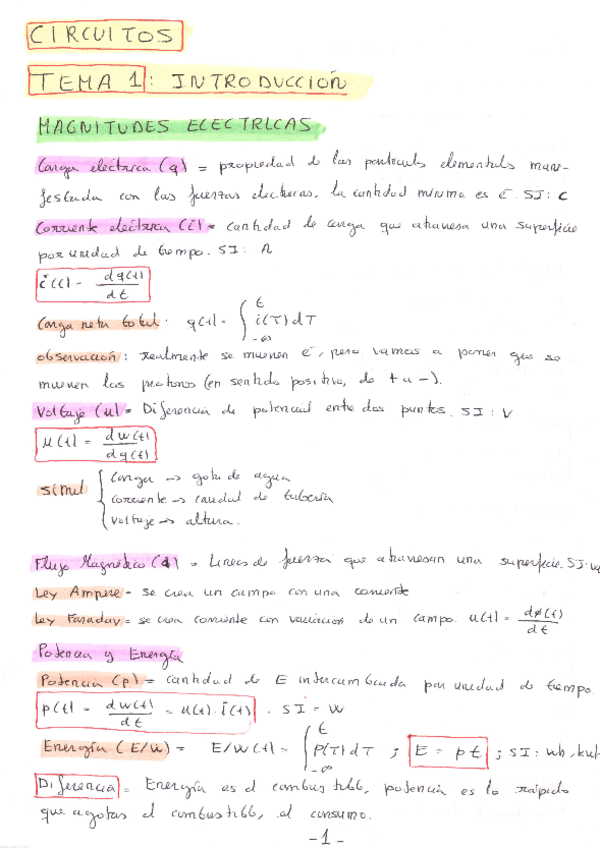 CIRCUITOS
TEMA 1: INTRODUCCIÓN
MAGNITUDES ELECTRICAS
Carga eléctrica (q) = propiedad de las partículas elementales mani-
festada con las fuerzas electricas. la cantidad mínima es é. SI: C
Corriente eléctrica (i) = cantidad de carga que atraviesa una superficie
por unidad de tiempo. SI: A
i(t) = dq(t)/dt
Carga neta total: q(t) = ∫_{-∞}^{t} i(τ)dτ
observación: realmente se mueven é, pero vamos a poner que se
mueven los protones (en sentido positivo, de + a -).
Voltaje (u) = Diferencia de potencial entre dos puntos. SI: V
u(t) = dw(t)/dq(t)
simil { Carga → gota de agua
corriente → caudal de tubería
Voltaje → altura.
Flujo Magnético (ϕ) = Lineas de fuerza que atraviesan una superficie. SI: w
Ley Ampere = se crea un campo con una corriente
Ley Faraday = se crea corriente con variación de un campo. u(t) = dϕ(t)/dt
Potencia y Energía
Potencia (p) = cantidad de E intercambiada por unidad de tiempo.
p(t) = dw(t)/dt = u(t)·i(t). SI = W
Energía (E/w) = E/w(t) = ∫_{-∞}^{t} p(τ)dτ ; E = pt ; SI: wh, kwh
Diferencia = Energía es el combustible, potencia es lo rápido
que agotas el combustible, el consumo.
-1-